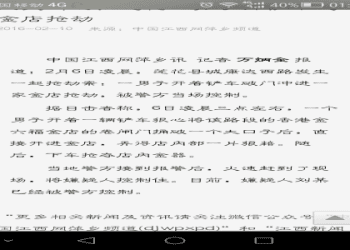 国移动 4G 40% 01:
金店抢劫
2016-02-10 来源：中国江西网萍乡频道
中国江西网萍乡讯 记者万炳金报
道：2月6日凌晨，莲花县城康达西路发生
一起抢劫案，一男子开着铲车破门冲进一
家金店抢劫，被警方当场控制。
据目击者称，6日凌晨三点左右，一个
男子开着一辆铲车狠心将该路段的香港金
六福金店的卷闸门捅破一个大口子后，直
接开进金店，弄得店内部一片狼藉。随
后，下车抢夺店内金器。
当地警方接到报警后，火速赶到了现
场，将嫌疑人控制住。目前，嫌疑人刘某
已经被警方控制。
“更多相关新闻及资讯请关注微信公众号
国江西网萍乡频道(djwpxpd)”和“江西新闻